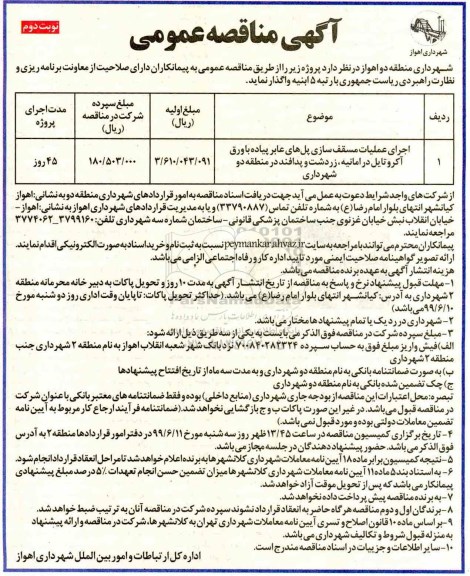 نوبت دوم
آگهی مناقصه عمومی
شهرداری اهواز
شهرداری منطقه دو اهواز در نظر دارد پروژه زیر را از طریق مناقصه عمومی به پیمانکاران دارای صلاحیت از معاونت برنامه ریزی و
نظارت راهبردی ریاست جمهوری با رتبه ۵ ابنیه واگذار نماید.
ردیف
موضوع
مبلغ اولیه (ریال)
مبلغ سپرده شرکت در مناقصه (ریال)
مدت اجرای پروژه
۱
اجرای عملیات مسقف سازی پل‌های عابر پیاده با ورق
آکروتایل در امانیه، زردشت و پدافند در منطقه دو
شهرداری
۳/۶۱۰/۰۴۳/۰۹۱
۱۸۰/۵۰۳/۰۰۰
۴۵ روز
از شرکت‌های واجد شرایط دعوت به عمل می آید جهت دریافت اسناد مناقصه به امور قراردادهای شهرداری منطقه دو به نشانی: اهواز
کیانشهر انتهای بلوار امام رضا (ع) به شماره تلفن تماس (۳۳۷۹۰۸۸۷) و یا به مدیریت قراردادهای شهرداری اهواز به نشانی: اهواز -
خیابان انقلاب نبش خیابان غزنوی جنب ساختمان پزشکی قانونی - ساختمان شماره سه شهرداری تلفن: ۳۷۹۹۱۶۰_۳۷۷۴۰۶۲
مراجعه نمایند.
پیمانکاران محترم می توانند با مراجعه به سایت peymankarahvaz.ir نسبت به ثبت نام و خرید اسناد به صورت الکترونیکی اقدام نمایند.
ارائه تصویر گواهینامه صلاحیت ایمنی مورد تایید اداره کار و رفاه اجتماعی الزامی می باشد.
هزینه انتشار آگهی به عهده برنده مناقصه می باشد.
۱- مهلت قبول پیشنهاد نرخ و پاسخ به مناقصه از تاریخ انتشار آگهی به مدت ۱۰ روز و تحویل پاکات به دبیر خانه محرمانه منطقه
۲ شهرداری به آدرس: کیانشهر انتهای بلوار امام رضا (ع) می باشد. (حداکثر تحویل پاکات: تا پایان وقت اداری روز دو شنبه مورخ
۹۹/۶/۱۰ می باشد)
۲- شهرداری در رد یک یا تمام پیشنهادها مختار می باشد.
۳- مبلغ سپرده شرکت در مناقصه فوق الذکر می بایست به یکی از سه طریق ذیل ارائه شود:
الف) فیش واریز مبلغ فوق به حساب سپرده ۷۰۰۸۴۰۲۸۳۳۲۴ نزد بانک شهر شعبه انقلاب اهواز به نام منطقه ۲ شهرداری جنب
منطقه ۲ شهرداری
ب) به صورت ضمانتنامه بانکی به نام منطقه دو شهرداری و به مدت سه ماه از تاریخ افتتاح پیشنهادها
ج) چک تضمین شده بانکی به نام منطقه دو شهرداری
تبصره: محل اعتبارات این مناقصه از بودجه جاری شهرداری (منابع داخلی) بوده و فقط ضمانتنامه های معتبر بانکی با عنوان شرکت
در مناقصه قبول می باشد. در غیر این صورت پاکات ب و ج باز گشایی نخواهد شد. (ضمانتنامه فرآیند ارجاع کار مربوط به آیین نامه
تضمین معاملات دولتی بوده و مورد قبول نمی باشد)
۴- تاریخ برگزاری کمیسیون مناقصه در ساعت ۱۳/۴۵ ظهر روز سه شنبه مورخ ۹۹/۶/۱۱ در دفتر امور قراردادها منطقه ۲ به آدرس
فوق الذکر می باشد. حضور پیشنهاد دهندگان در جلسه مجاز می باشد.
۵- نتیجه کمیسیون برابر ماده ۱۸ آیین نامه معاملات شهرداری کلانشهرها به برنده اعلام خواهد شد تا مراحل انعقاد قرارداد انجام شود.
۶- به استناد بند ۵ ماده ۱۱ آیین نامه معاملات شهرداری کلانشهرها میزان تضمین حسن انجام تعهدات ۵٪ درصد مبلغ پیشنهادی
پیمانکار می باشد که پس از تحویل موقت آزاد خواهد شد.
۷- به برنده مناقصه پیش پرداخت داده نخواهد شد.
۸- برندگان اول و دوم مناقصه هرگاه حاضر به انعقاد قرارداد نشوند سپرده شرکت در مناقصه آنان به ترتیب ضبط خواهد شد.
۹- بر اساس ماده ۱۰ قانون اصلاح و تسری آیین نامه معاملات شهرداری تهران به کلانشهرها، شرکت در مناقصه و ارائه پیشنهاد
به منزله قبول شروط و تکالیف شهرداری می باشد.
۱۰- سایر اطلاعات و جزییات در اسناد مناقصه مندرج است.
اداره کل ارتباطات و امور بین الملل شهرداری اهواز